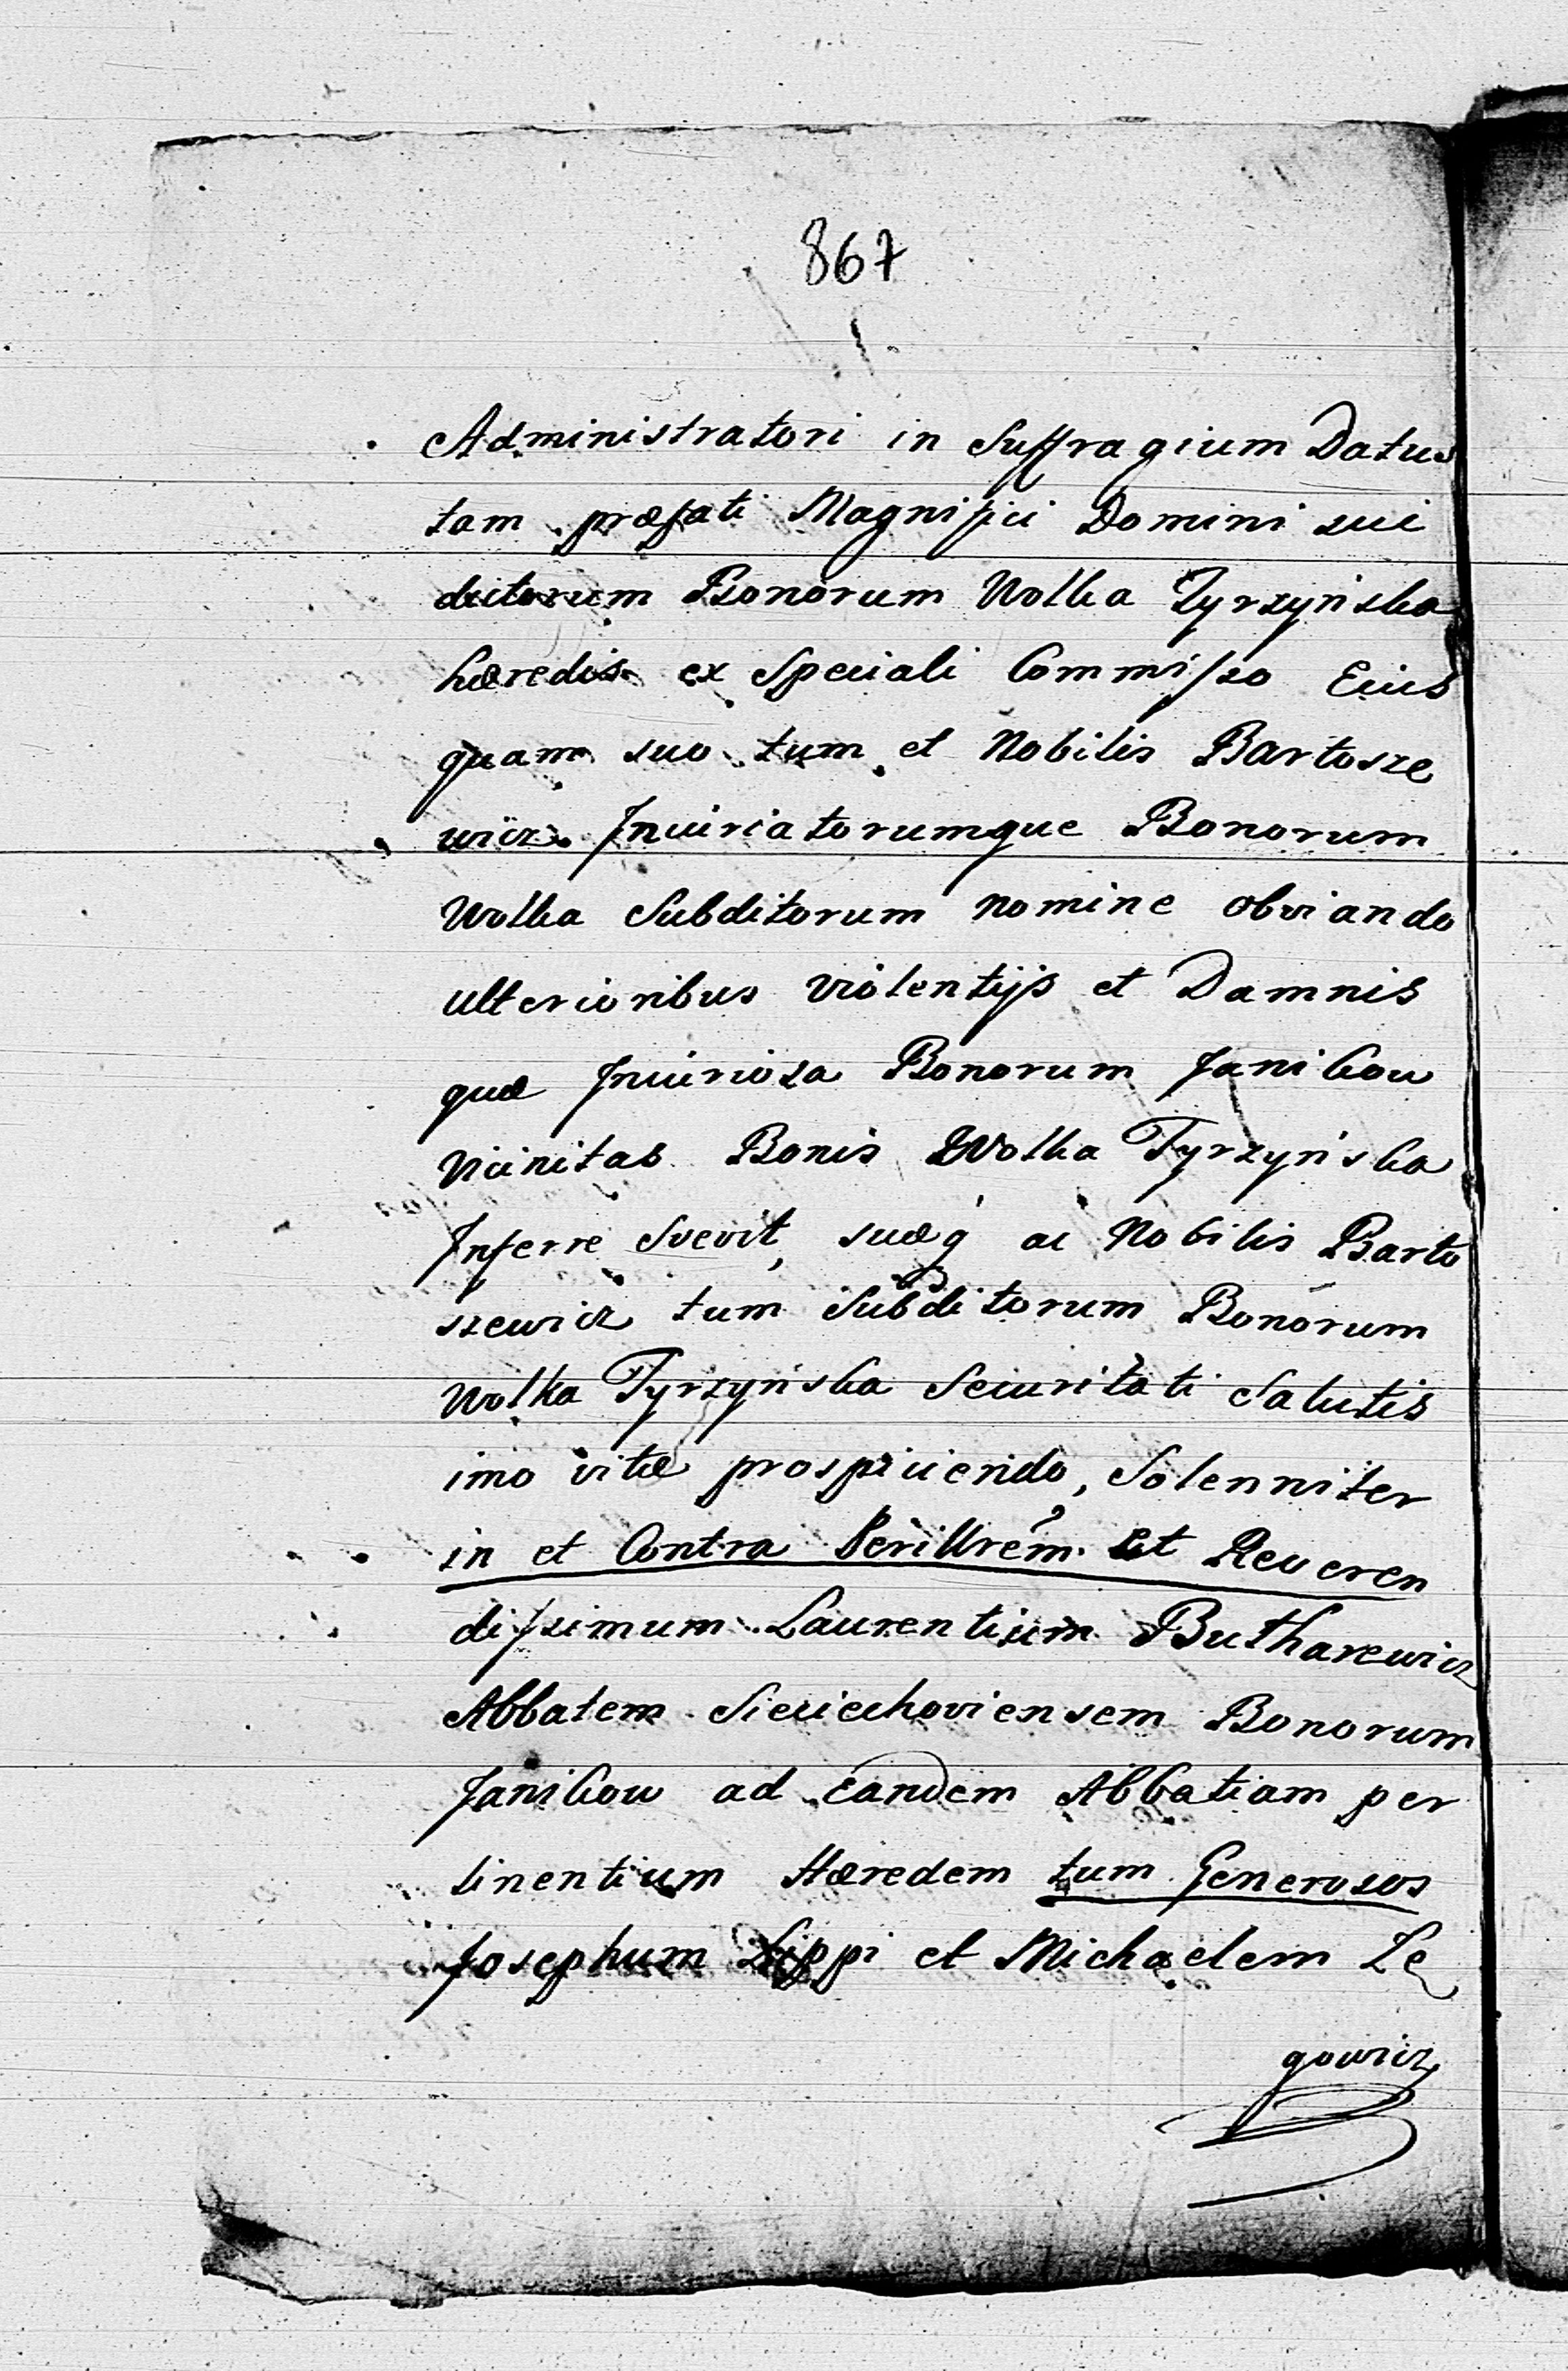 867
Administratori in Suffragium Datus
tam præfati Magnifici Domini sui
dictorum Bonorum Wolka Tyrzyńska
hæredis ex Speciali Commisso Eius
quam suo tum et Nobilis Bartosze
wicz Iniuriatorumque Bonorum
Wolka Subditorum nomine obviando
ulterioribus violentijs et Damnis
quæ Iniuriosa Bonorum Janikow
Vicinitas Bonis Wolka Tyrzyńska
Inferre Svevit, suæq ac Nobilis Barto
szewicz tum Subditorum Bonorum
Wolka Tyrzyńska Securitati Salutis
imo vitæ prospiciendo, Solenniter
in et Contra Perillrem et Reveren
dissimum Laurentium Butharewicz
Abbatem Sieciechoviensem Bonorum
Janikow ad Eandem Abbatiam per
tinentium Hæredem tum Generosos
Josephum Lippi et Michaelem Le
gowicz